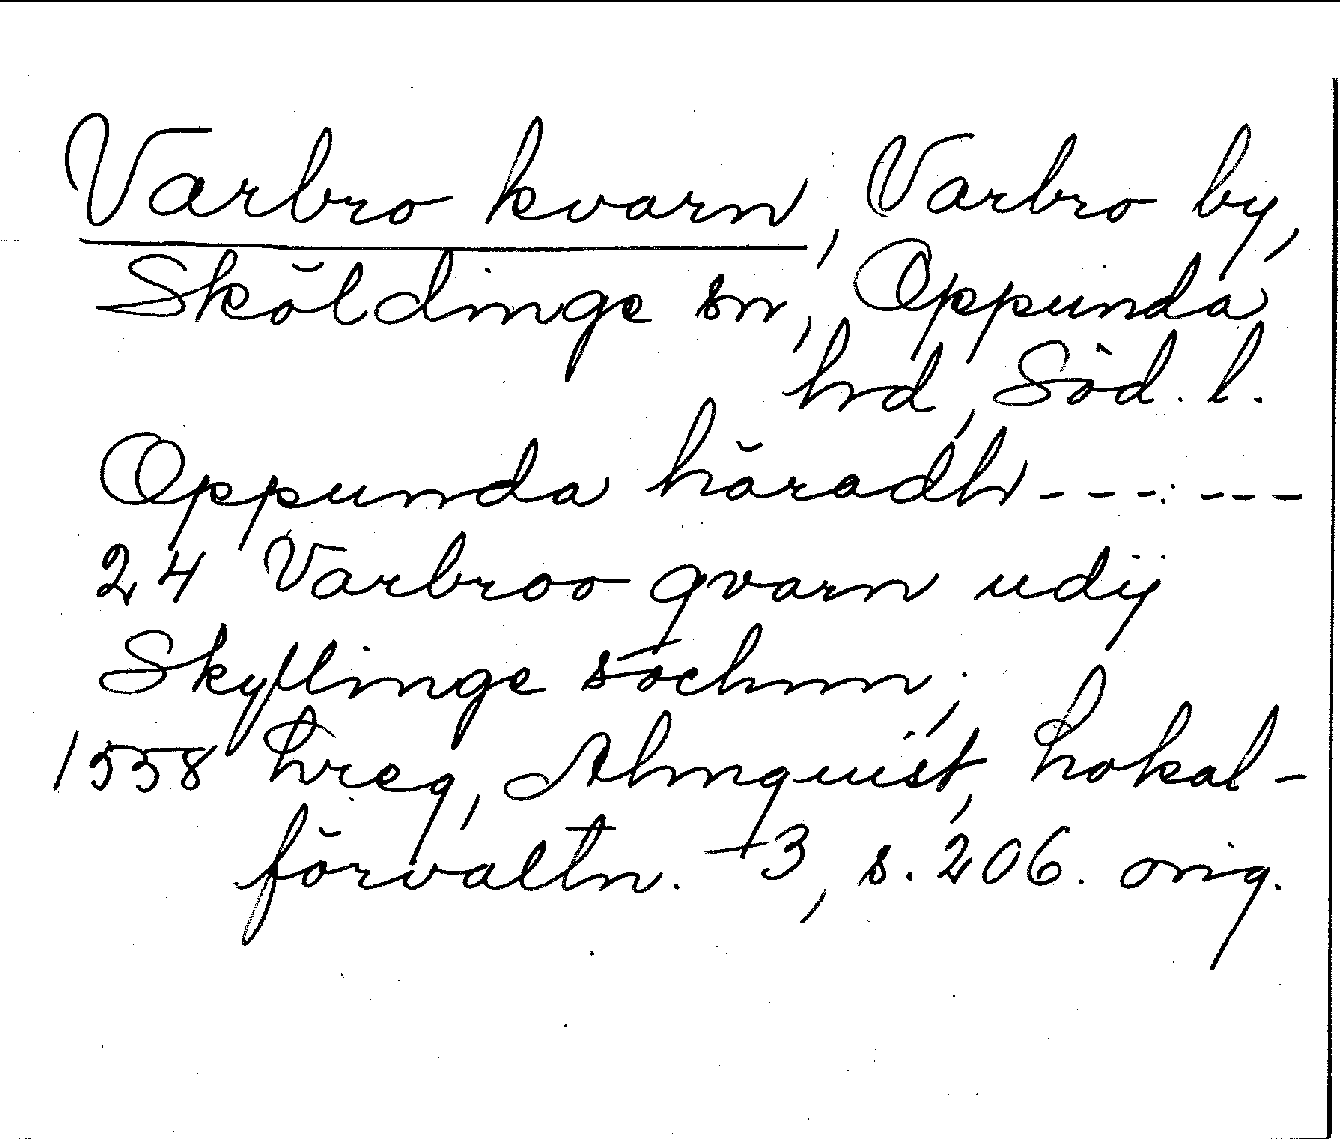 Varbro kvarn, Varbro by,
Sköldinge sn, Oppunda
hd, Söd. l.
Oppunda häradh ------
24 Varbroo qvarn udÿ
Skyllinge sochnn,
1558 hreg, Almquist, Lokal-
förvaltn. 3, s. 206. orig.